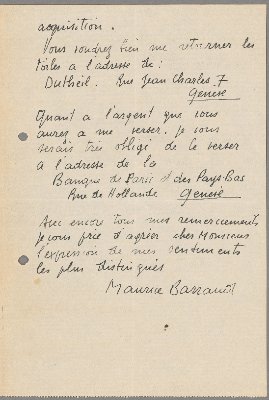 acquisition.
Vous voudrez bien me retourner les
toiles a l'adresse de :
Dutheil. Rue Jean Charles. 7
Genève
Quant a l'argent que vous
aurez a me verser, je vous
serais très obligé de le verser
a l'adresse de la
Banque de Paris et des Pays-Bas
Rue de Hollande Genève
Avec encore tous mes remerciements
je vous prie d'agréer cher Monsieur
l'expression de mes sentiments
les plus distingués
Maurice Barraud